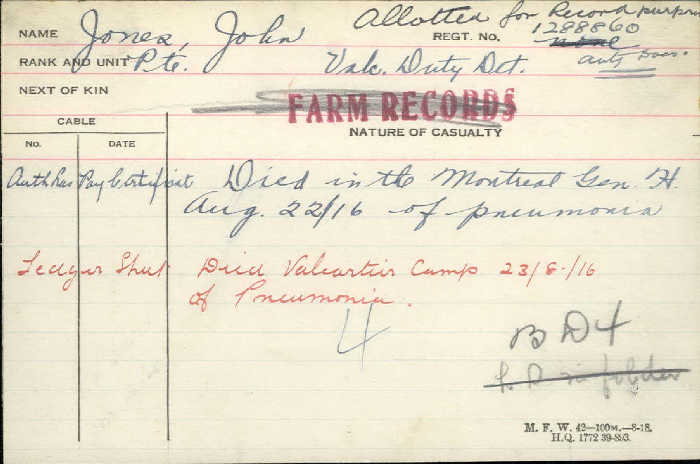 Allotted for Record purposes
NAME Jones, John REGT. NO. 1288860
none
RANK AND UNIT Pte. Valc. Duty Det. auth Docs.
NEXT OF KIN
FARM RECORDS
CABLE NATURE OF CASUALTY
NO. DATE
Auth Pay Certificat Died in the Montreal Gen. H.
Aug. 22/16 of pneumonia
Ledger Sheet Died Valcartier Camp 23/8/16
of Pneumonia.
4
B D4
in folder
M. F. W. 42—100M.—8-18.
H.Q. 1772 39-893.